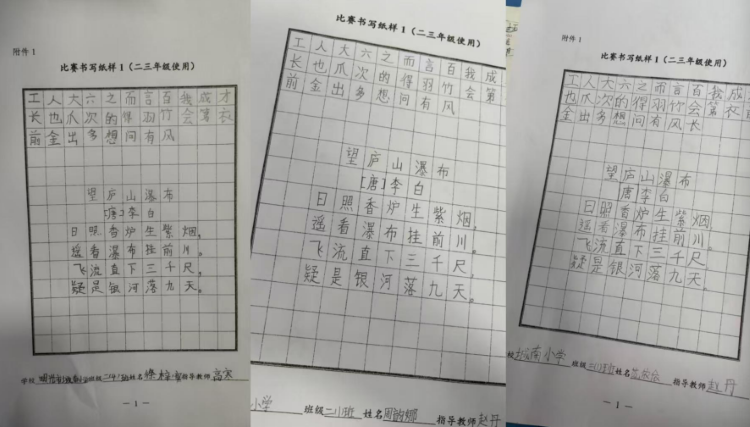 附件1
比赛书写纸样1（二三年级使用）
工人大六之而言百我成才
长也爪次的得羽竹会第衣
前金出多想问有风
望庐山瀑布
[唐]李白
日照香炉生紫烟，
遥看瀑布挂前川。
飞流直下三千尺，
疑是银河落九天。
学校 班级 姓名 指导教师
— 1 —
比赛书写纸样1（二三年级使用）
工人大六之而言百我成
长也爪次的得羽竹会第
前金出多想问有风
望庐山瀑布
[唐]李白
日照香炉生紫烟，
遥看瀑布挂前川。
飞流直下三千尺，
疑是银河落九天。
小学 班级二1班 姓名 指导教师赵丹
附件1
比赛书写纸样1（二三年级使用）
工人大六之而言百我成
也爪次的得羽竹会第衣
金出多想问有风长
望庐山瀑布
唐李白
日照香炉生紫烟
遥看瀑布挂前川
飞流直下三千尺
疑是银河落九天
校 南小学 班级 姓名 指导教师赵丹
— 1 —